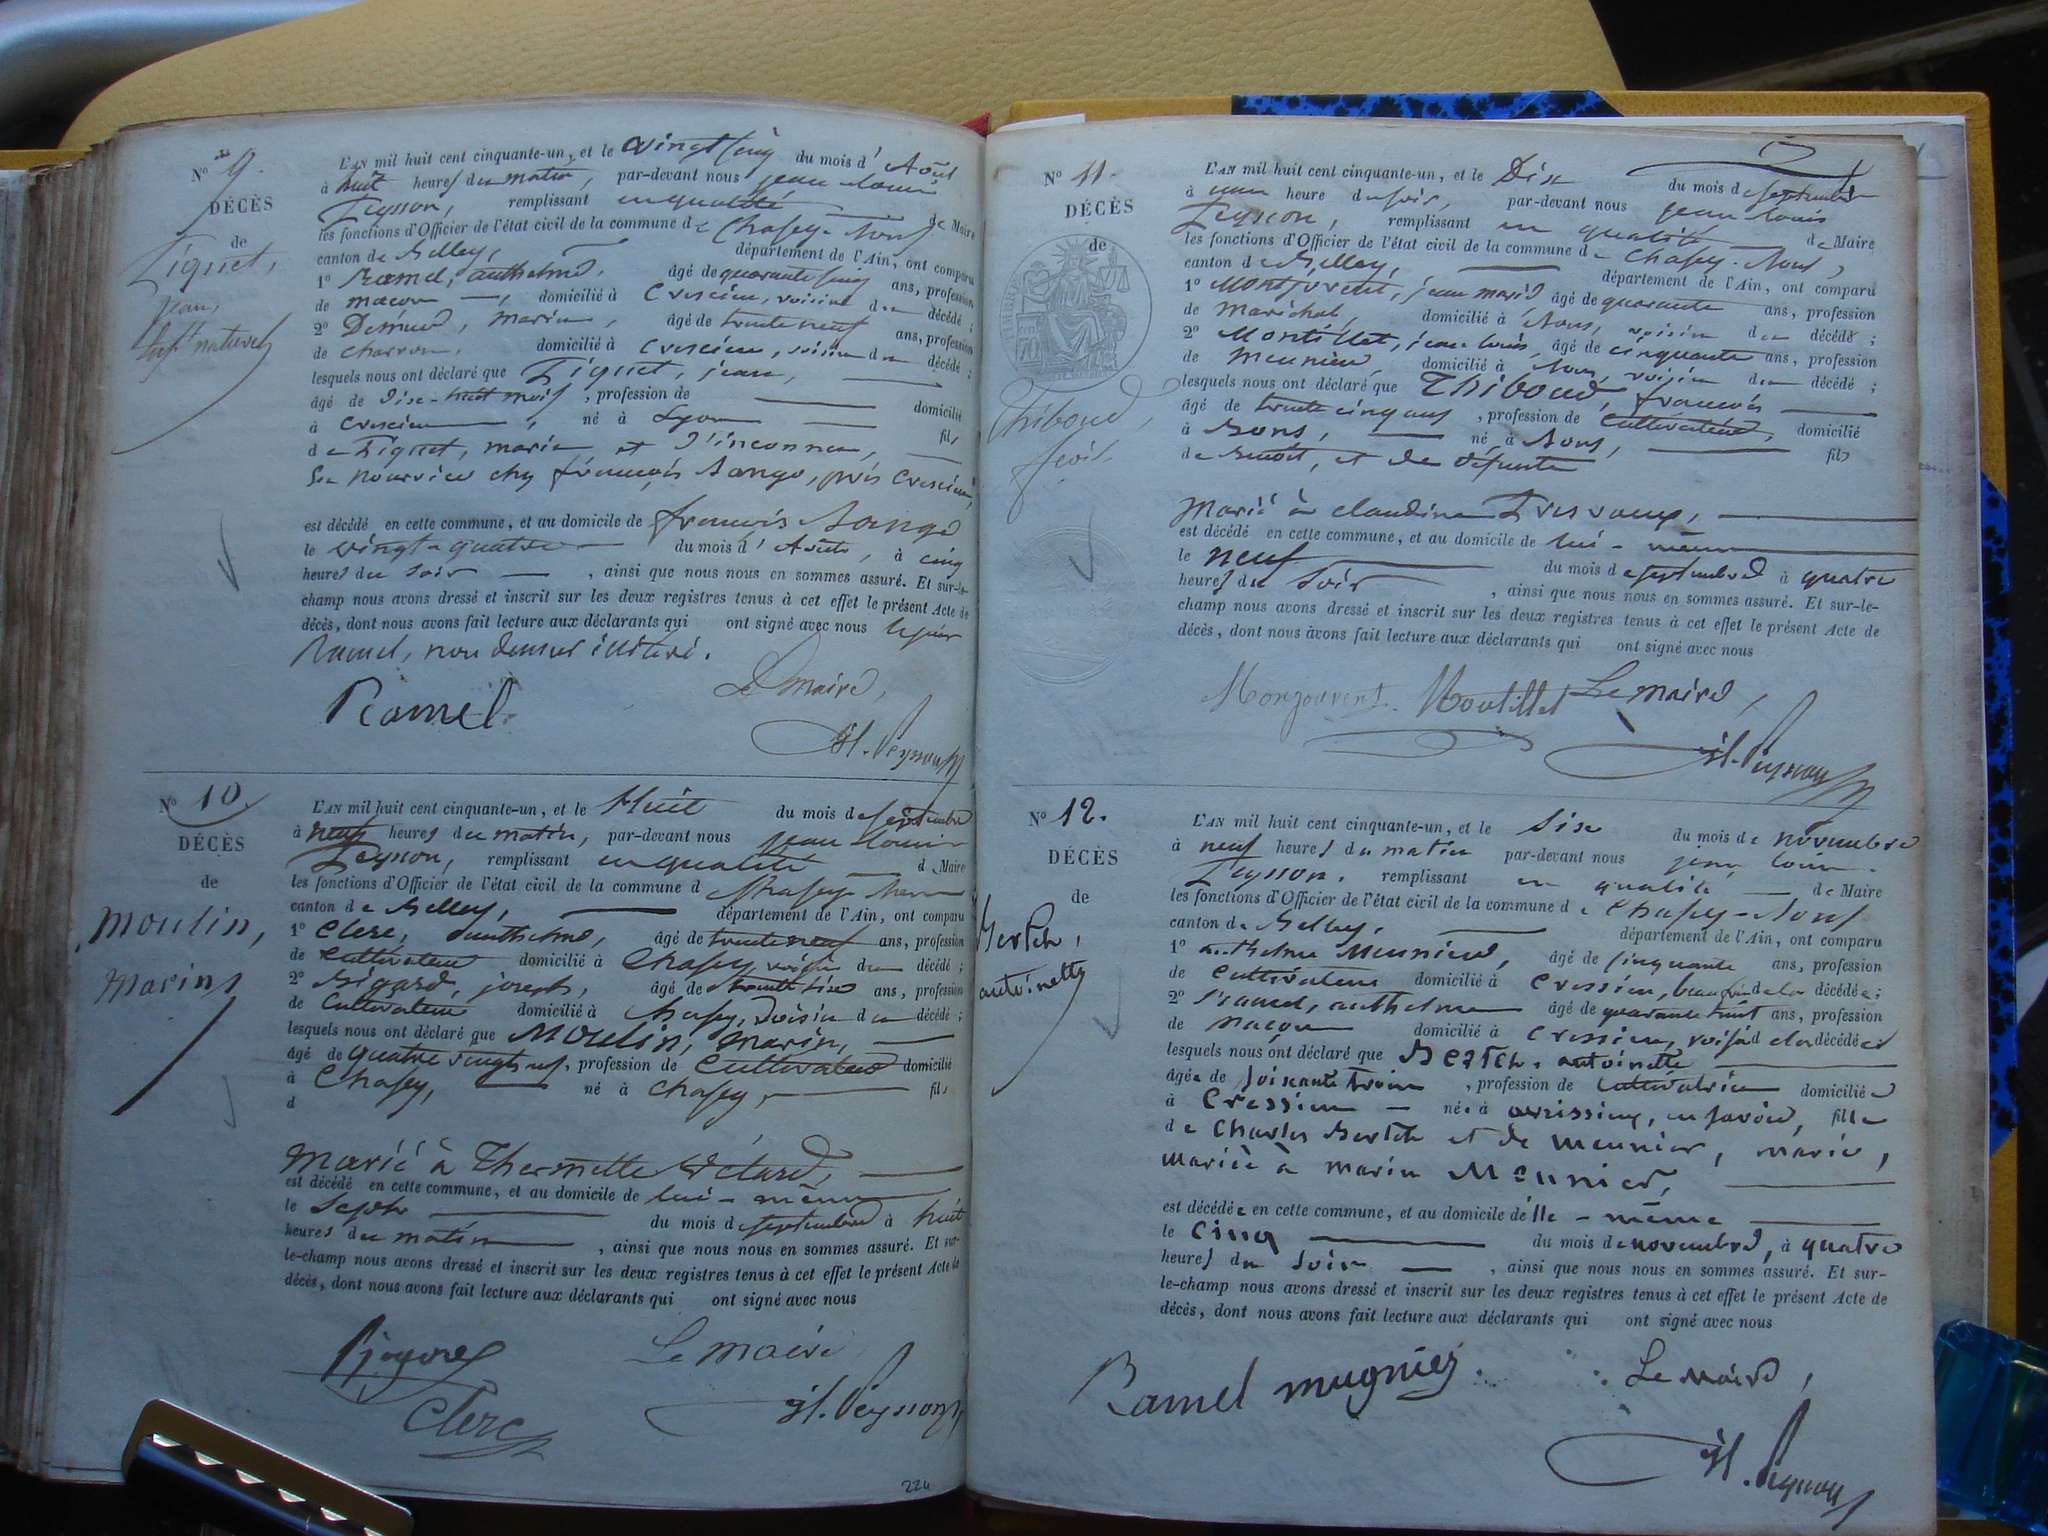 N° 9.
DÉCÈS
de
Jean,
L'AN mil huit cent cinquante-un, et le vingt cinq du mois d' Août
à huit heures du matin, par-devant nous jean louis
Peysson, remplissant en qualité de Maire
les fonctions d'Officier de l'état civil de la commune de Chasey-Bons
canton de Belley, département de l'Ain, ont comparu
1° Ramel, anthelme, âgé de quarante cinq ans, profession
de maçon, domicilié à Cressieu, voisin du décédé ;
2° marin, âgé de trente neuf ans, profession
de charron, domicilié à Cressieu, voisin du décédé ;
lesquels nous ont déclaré que jean,
âgé de dix-huit mois, profession de domicilié
à Cressieu, né à Lyon fils
de marie et d'inconnu,
en nourrice chez françois près Cressieu,
est décédé en cette commune, et au domicile de françois
le vingt-quatre du mois d' Août, à cinq
heures du soir, ainsi que nous nous en sommes assuré. Et sur-le-
champ nous avons dressé et inscrit sur les deux registres tenus à cet effet le présent Acte de
décès, dont nous avons fait lecture aux déclarants qui ont signé avec nous
Ramel, non illitéré.
Le maire,
Ramel
Jl. Peysson
N° 10.
DÉCÈS
de
Moulin,
Marin
L'AN mil huit cent cinquante-un, et le Huit du mois de septembre
à neuf heures du matin, par-devant nous jean louis
Peysson, remplissant en qualité de Maire
les fonctions d'Officier de l'état civil de la commune d Chasey-Bons
canton de Belley, département de l'Ain, ont comparu
1° Clerc, anthelme, âgé de trente neuf ans, profession
de cultivateur domicilié à Chasey, voisin du décédé ;
2° Bigard, joseph, âgé de trente six ans, profession
de cultivateur domicilié à Chasey, voisin du décédé ;
lesquels nous ont déclaré que Moulin, marin,
âgé de quatre vingt neuf, profession de Cultivateur domicilié
à Chasey, né à Chasey, fils
d
Marié à Thermette
est décédé en cette commune, et au domicile de lui-même
le Sept du mois de septembre à huit
heures du matin, ainsi que nous nous en sommes assuré. Et sur-
le-champ nous avons dressé et inscrit sur les deux registres tenus à cet effet le présent Acte de
décès, dont nous avons fait lecture aux déclarants qui ont signé avec nous
Le maire
Clerc
Jl. Peysson
224
N° 11.
DÉCÈS
de
Thiboud,
L'AN mil huit cent cinquante-un, et le Dix du mois de septembre
à une heure du soir, par-devant nous jean louis
Peysson, remplissant en qualité de Maire
les fonctions d'Officier de l'état civil de la commune de Chasey-Bons,
canton de Belley, département de l'Ain, ont comparu
1° Montjouvent, jean marie âgé de quarante ans, profession
de maréchal, domicilié à Bons, voisin du décédé ;
2° Montillet, jean louis, âgé de cinquante ans, profession
de meunier, domicilié à Bons, voisin du décédé ;
lesquels nous ont déclaré que Thiboud, françois
âgé de trente cinq ans, profession de Cultivateur, domicilié
à Bons, né à Bons, fils
de Benoît, et de défunte
Marié à claudine
est décédé en cette commune, et au domicile de lui-même
le neuf du mois de septembre à quatre
heures du soir, ainsi que nous nous en sommes assuré. Et sur-le-
champ nous avons dressé et inscrit sur les deux registres tenus à cet effet le présent Acte de
décès, dont nous avons fait lecture aux déclarants qui ont signé avec nous
Monjouvent. Montillet Le maire,
Jl. Peysson
N° 12.
DÉCÈS
de
Bertch,
antoinette
L'AN mil huit cent cinquante-un, et le six du mois de novembre
à neuf heures du matin par-devant nous jean louis
Peysson, remplissant en qualité de Maire
les fonctions d'Officier de l'état civil de la commune de Chasey-Bons
canton de Belley, département de l'Ain, ont comparu
1° anthelme Meunier, âgé de cinquante ans, profession
de cultivateur domicilié à Cressieu, de la décédée ;
2° Ramel, anthelme âgé de quarante huit ans, profession
de maçon domicilié à Cressieu, voisin de la décédée
lesquels nous ont déclaré que Bertch, antoinette
âgée de soixante trois, profession de cultivatrice domiciliée
à Cressieu née à en savoie, fille
de Charles Bertch et de meunier, marie,
mariée à marin Meunier,
est décédée en cette commune, et au domicile d'elle-même
le cinq du mois de novembre, à quatre
heures du soir, ainsi que nous nous en sommes assuré. Et sur-
le-champ nous avons dressé et inscrit sur les deux registres tenus à cet effet le présent Acte de
décès, dont nous avons fait lecture aux déclarants qui ont signé avec nous
Ramel mugnier. Le maire,
Jl. Peysson